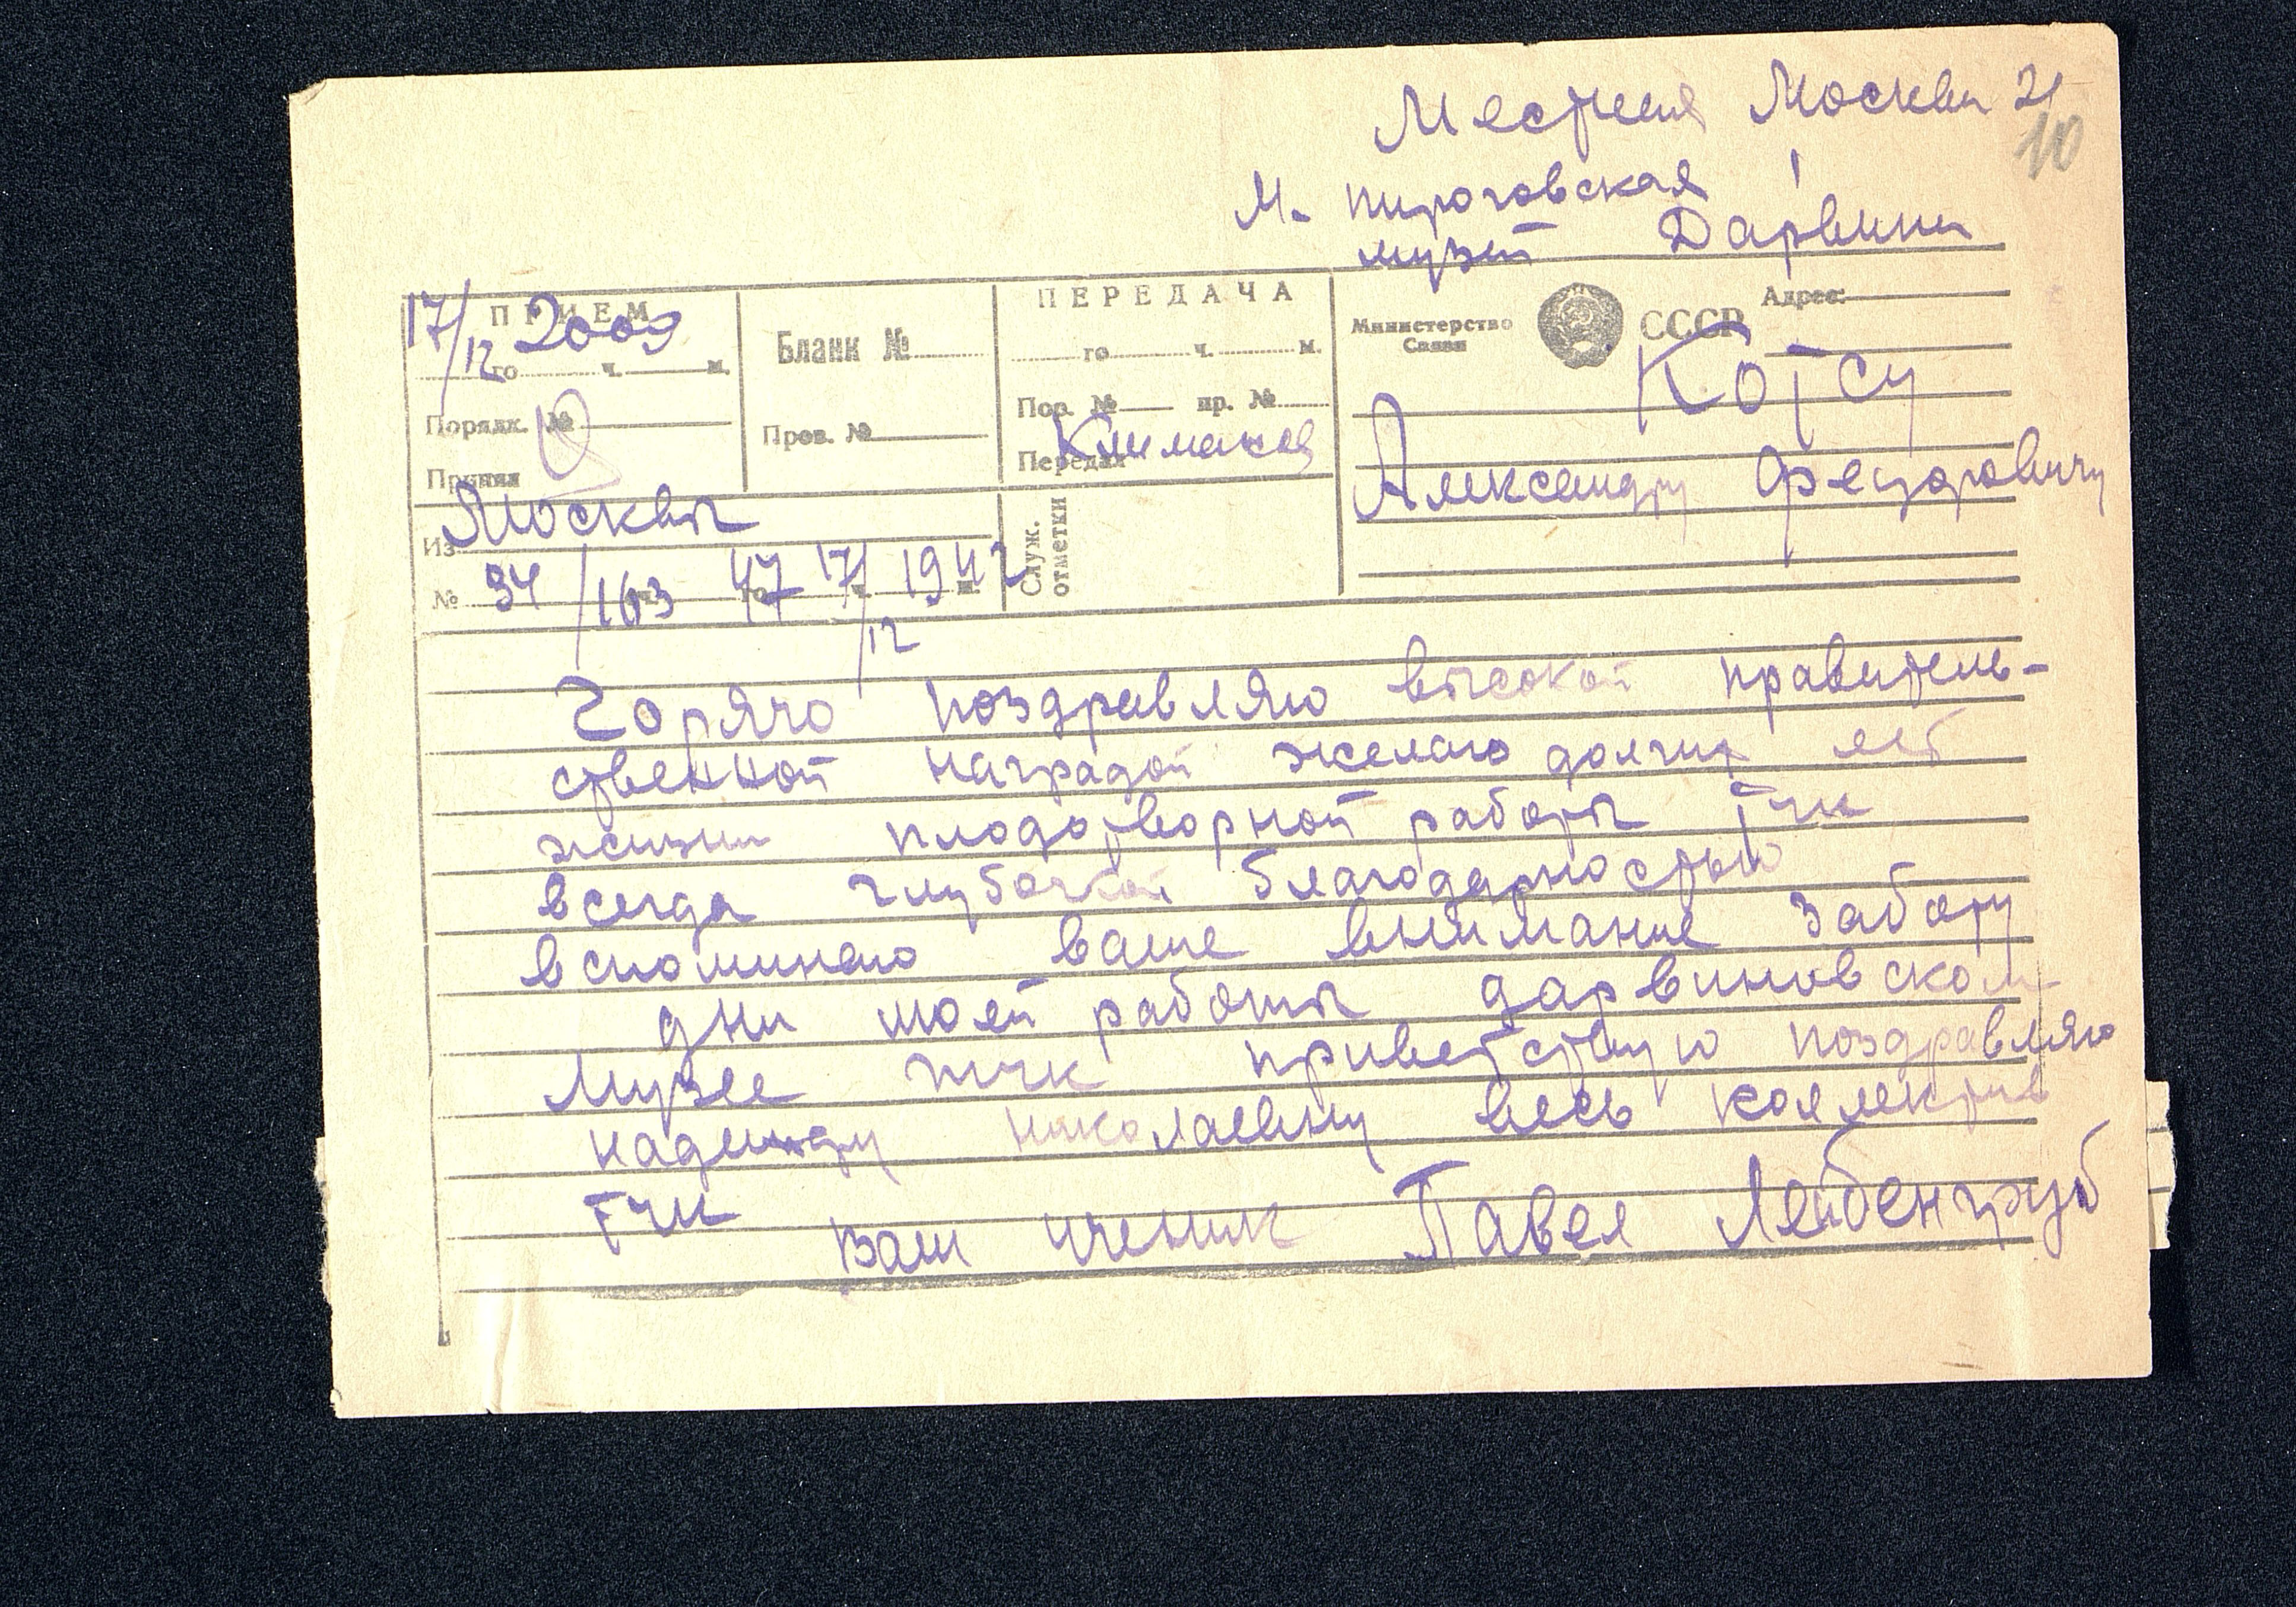 Местная Москва 21
10
М. пироговская 1
музей Дарвина
ПРИЕМ
17/12 2009
го ч. м.
Порядк. №
Принял
Бланк №
Пров. №
ПЕРЕДАЧА
го ч. м.
Пор. № пр. №
Передал
Министерство Связи
СССР
Адрес:
Котсу
Александру Федоровичу
Из Москвы
№ 94/163 47 17/12 1942
Служ. отметки
Горячо поздравляю высокой правитель-
ственной наградой желаю долгих лет
жизни плодотворной работы тчк
всегда глубокой благодарностью
вспоминаю ваше внимание заботу
дни моей работы дарвиновском
музее тчк приветствую поздравляю
надежду николаевну весь коллектив
тчк
Ваш ученик Павел Лейбенгруб